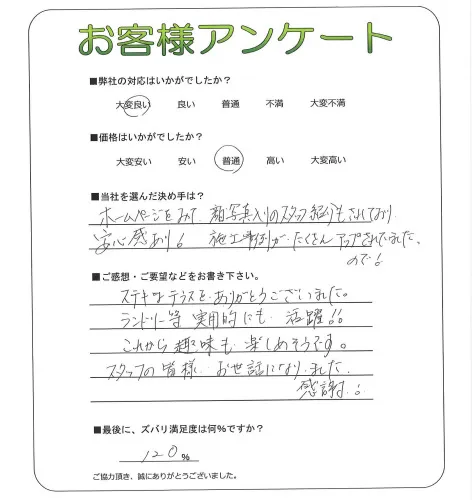 お客様アンケート
■弊社の対応はいかがでしたか？
大変良い 良い 普通 不満 大変不満
■価格はいかがでしたか？
大変安い 安い 普通 高い 大変高い
■当社を選んだ決め手は？
ホームページをみて、顔写真入りのスタッフ紹介もされており
安心感あり！ 施工事例が、たくさん アップされてました。
ので！
■ご感想・ご要望などをお書き下さい。
ステキなテラスを、ありがとうございました。
ランドリー等 実用的にも 活躍!!
これから 趣味も 楽しめそうです。
スタッフの皆様、お世話になりました。
感謝！
■最後に、ズバリ満足度は何%ですか？
120%
ご協力頂き、誠にありがとうございました。